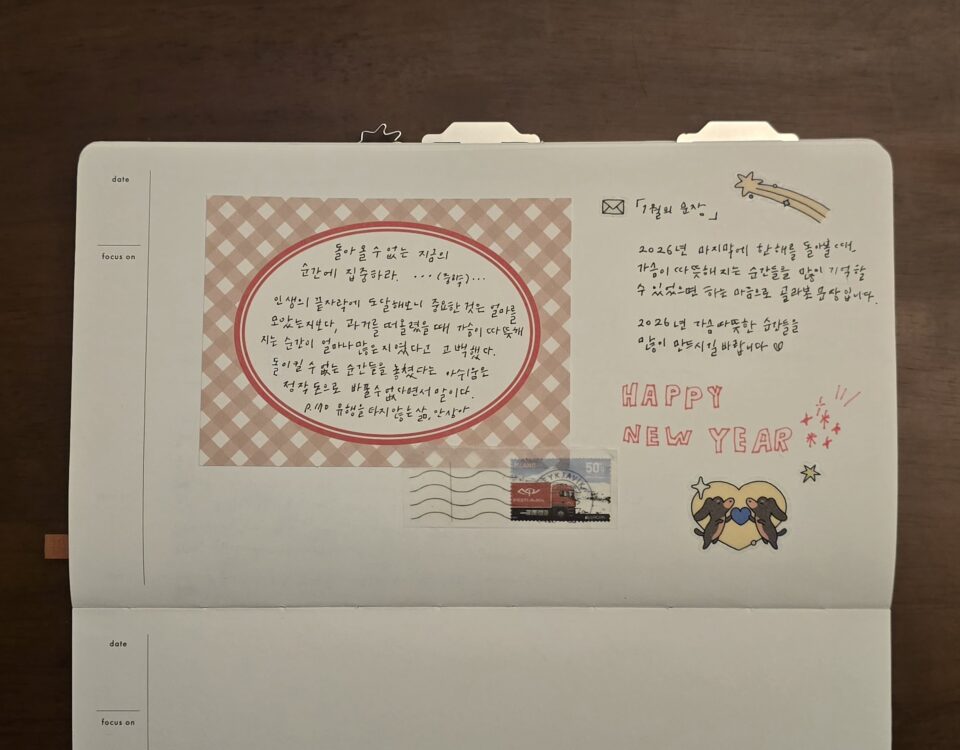 date
focus on
돌아올 수 없는 지금의
순간에 집중하라. ...(중략)...
인생의 끝자락에 도달해보니 중요한 것은 얼마를
모았는지보다, 과거를 떠올렸을 때 가슴이 따뜻해
지는 순간이 얼마나 많은지였다고 고백했다.
돌이킬 수 없는 순간들을 놓쳤다는 아쉬움은
정작 돈으로 바꿀 수 없다면서 말이다.
p.170 유행을 타지 않는 삶, 안상아
「1월의 문장」
2026년 마지막에 한 해를 돌아볼 때,
가슴이 따뜻해지는 순간들을 많이 기억할
수 있었으면 하는 마음으로 골라본 문장입니다.
2026년 가슴 따뜻한 순간들을
많이 만드시길 바랍니다
HAPPY
NEW YEAR
50g
date
focus on